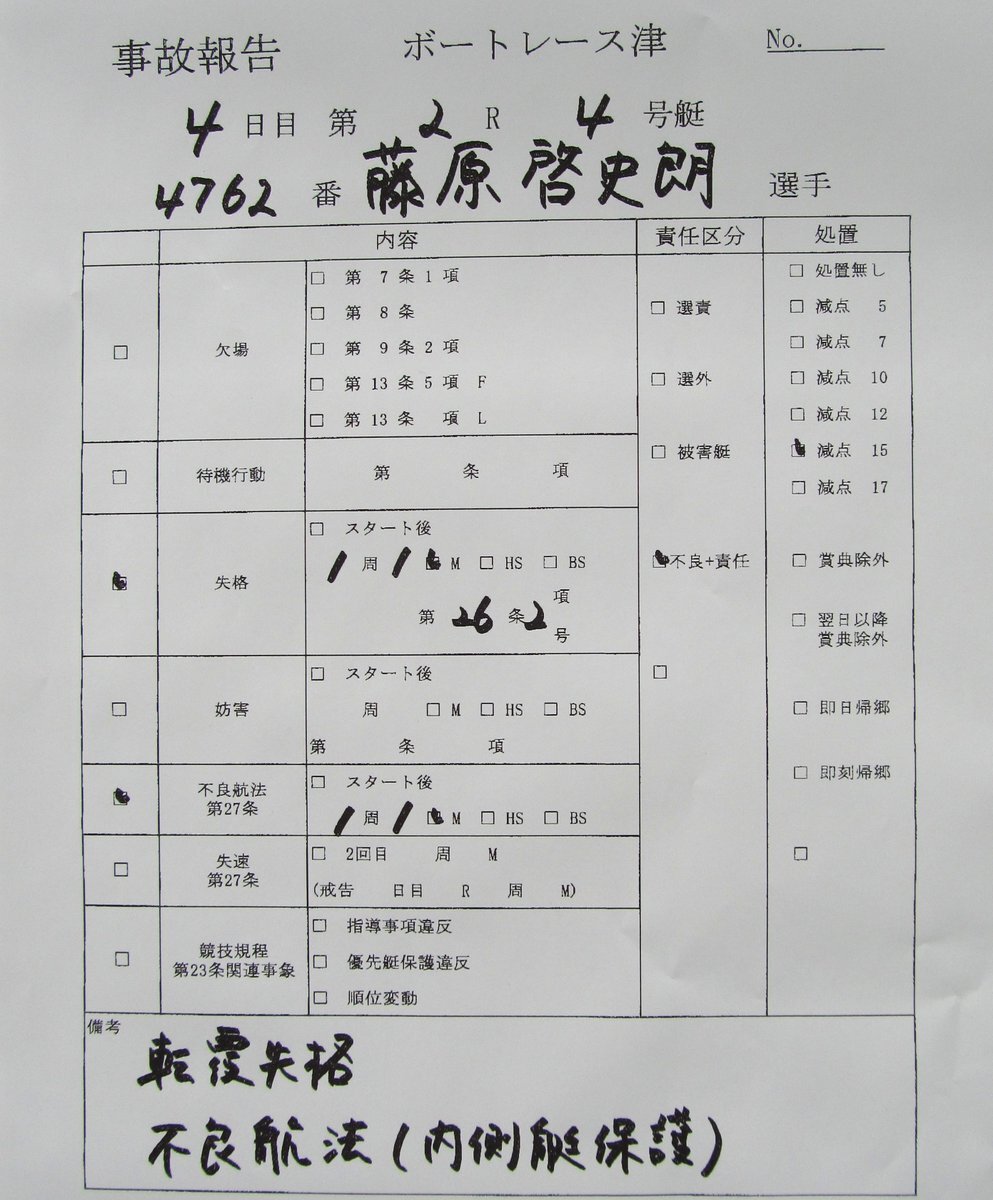 事故報告 ボートレース津 No.
4 日目 第 2 R 4 号艇
4762 番 藤原 啓史朗 選手
内容 責任区分 処置
□ 欠場
□ 第 7 条 1 項
□ 第 8 条
□ 第 9 条 2 項
□ 第 13 条 5 項 F
□ 第 13 条 項 L
□ 待機行動 第 条 項
☑ 失格
□ スタート後
1 周 1 ☑ M □ HS □ BS
第 26 条 2 項
号
□ 妨害
□ スタート後
周 □ M □ HS □ BS
第 条 項
☑ 不良航法
第27条
□ スタート後
1 周 1 ☑ M □ HS □ BS
□ 失速
第27条
□ 2回目 周 M
(戒告 日目 R 周 M)
□ 競技規程
第23条関連事象
□ 指導事項違反
□ 優先艇保護違反
□ 順位変動
□ 選責
□ 選外
□ 被害艇
☑ 不良+責任
□
□ 処置無し
□ 減点 5
□ 減点 7
□ 減点 10
□ 減点 12
☑ 減点 15
□ 減点 17
□ 賞典除外
□ 翌日以降
賞典除外
□ 即日帰郷
□ 即刻帰郷
□
備考
転覆失格
不良航法(内側艇保護)